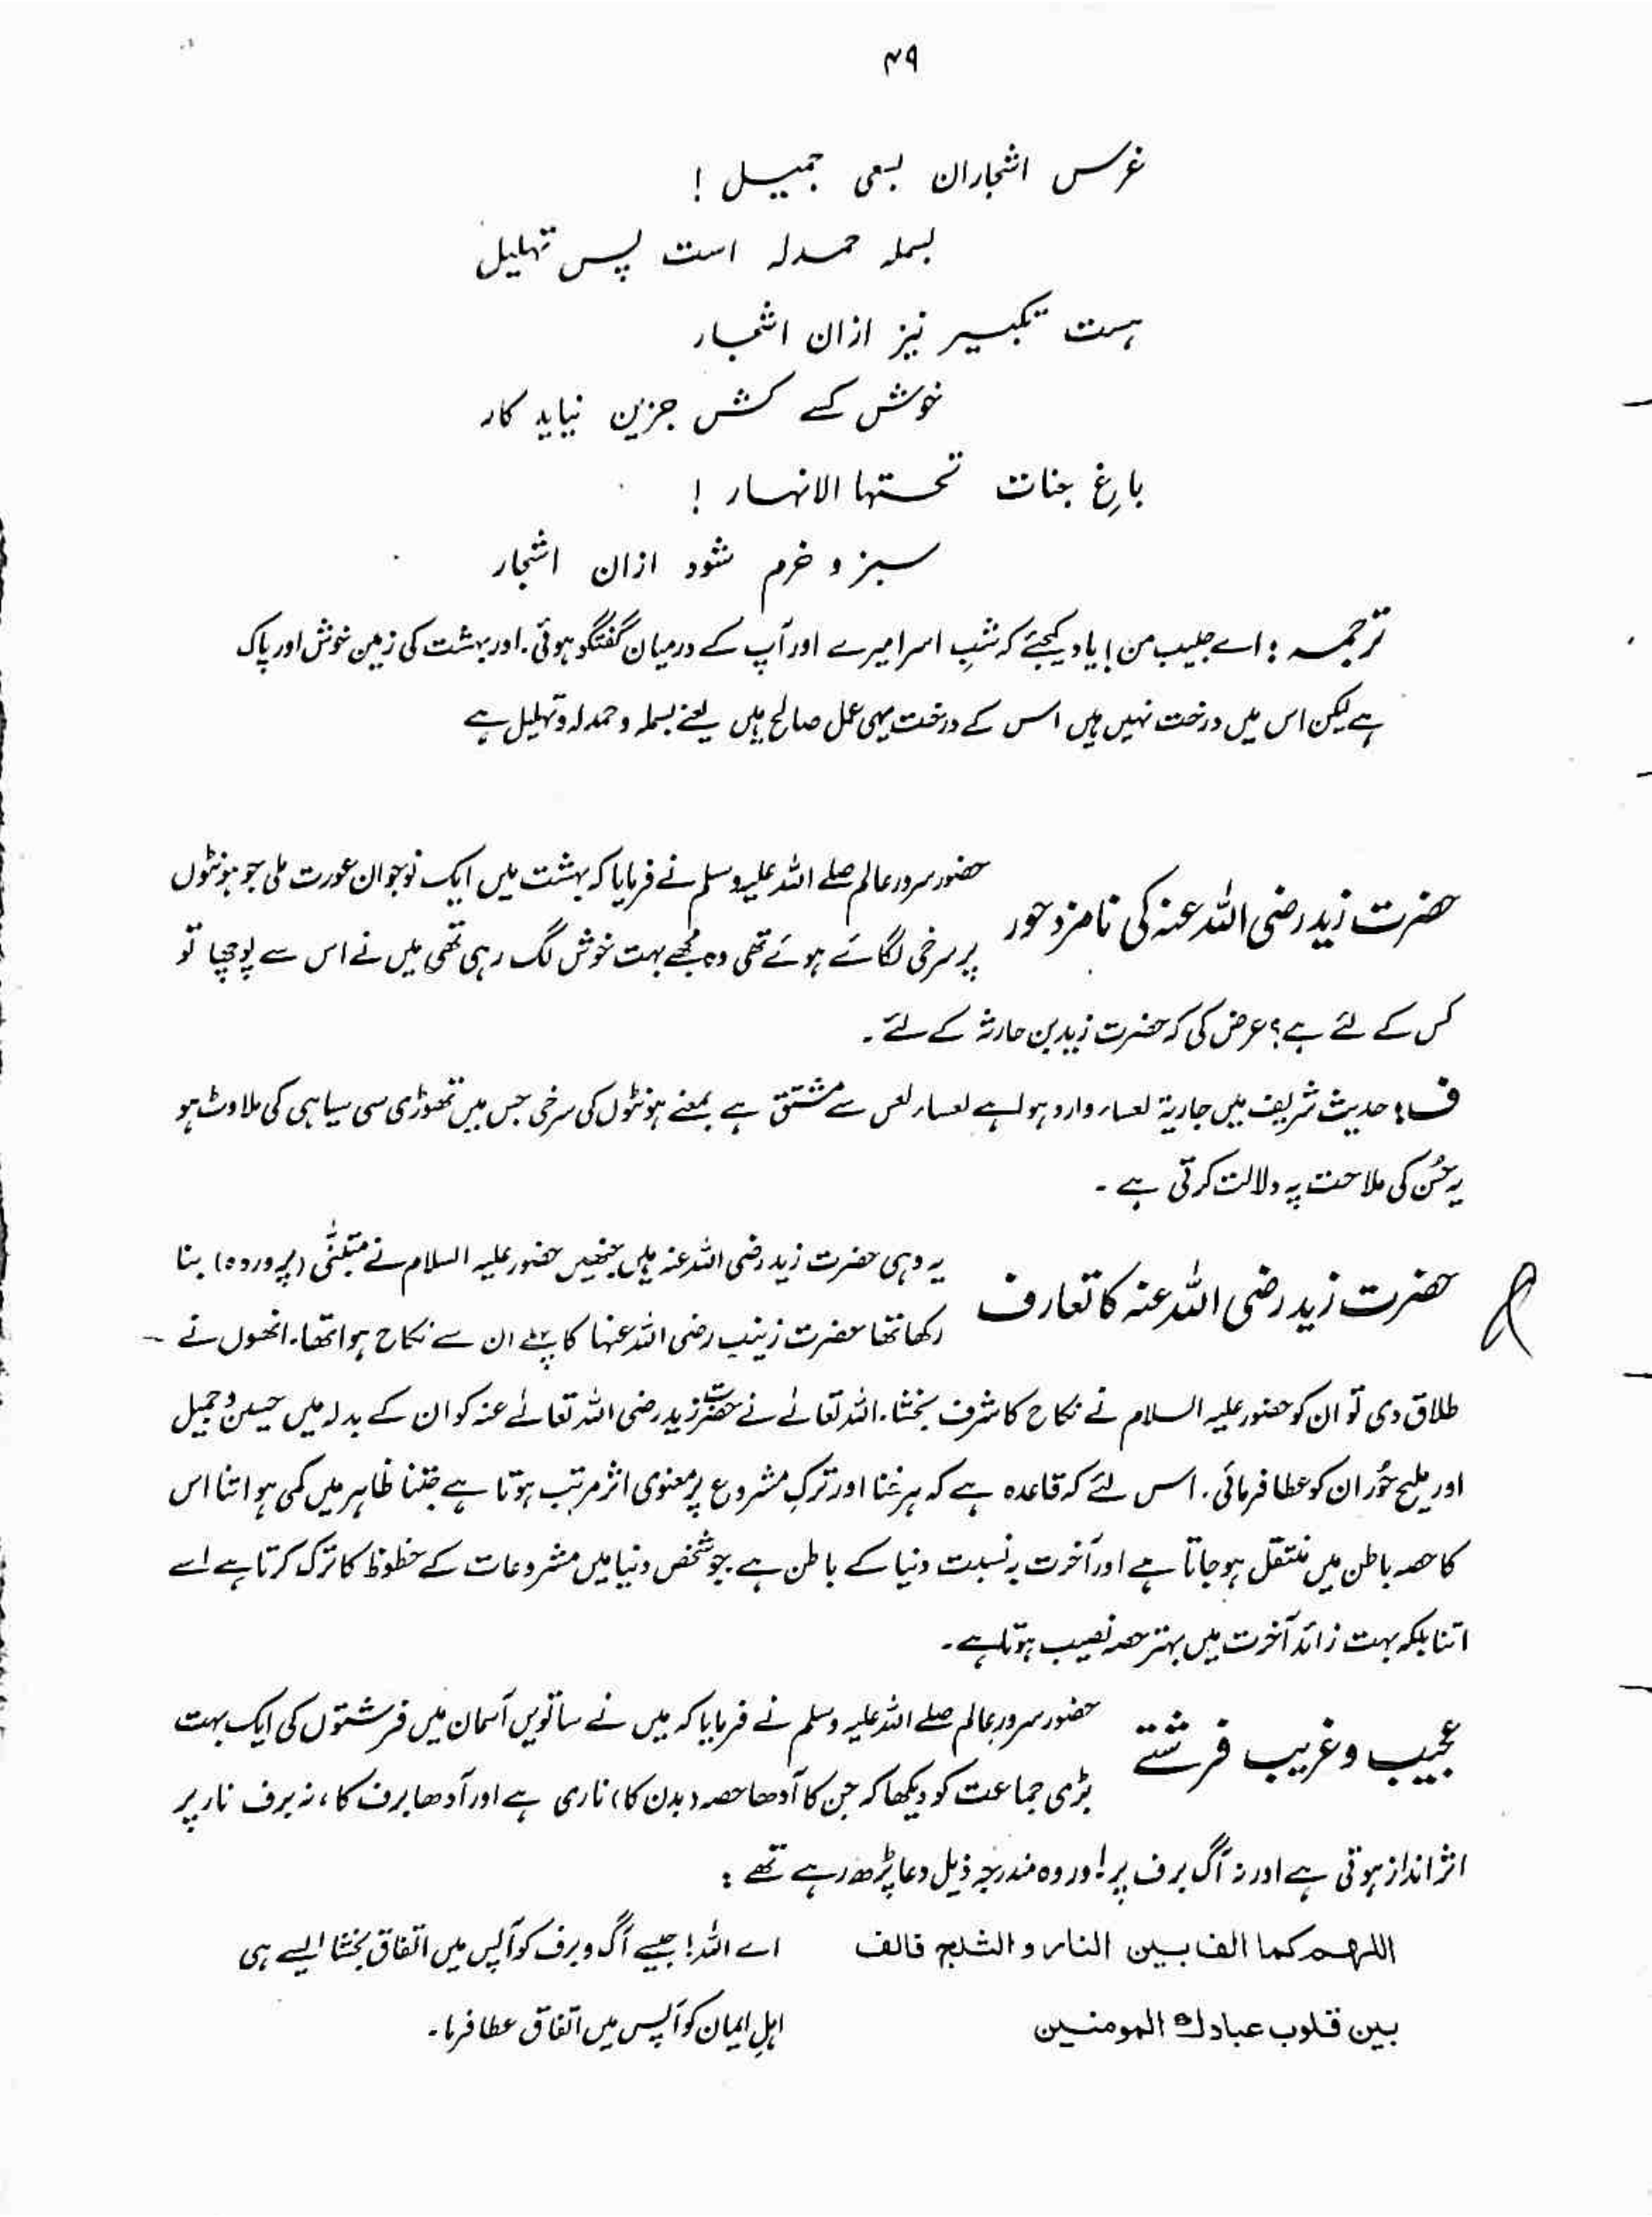 ۴۹
غرس اشجاران بسعی جمیل !
بسملہ حمدلہ است پس تہلیل
ہست تکبیر نیز ازان اشجار
خوش کسے کش جزین نیاید کار
باغِ جنات تحتہا الانہار !
سبز و خرم شود ازان اشجار
ترجمہ : اے حبیب من ! یاد کیجئے کہ شبِ اسرا میرے اور آپ کے درمیان گفتگو ہوئی۔ اور بہشت کی زمین خوش اور پاک
ہے لیکن اس میں درخت نہیں ہیں اس کے درخت یہی عمل صالح ہیں یعنے بسملہ و حمدلہ و تہلیل ہے
حضرت زید رضی اللہ عنہ کی نامزد حور
حضور سرور عالم صلے اللہ علیہ وسلم نے فرمایا کہ بہشت میں ایک نوجوان عورت ملی جو ہونٹوں
پر سرخی لگائے ہوئے تھی وہ مجھے بہت خوش لگ رہی تھی میں نے اس سے پوچھا تو
کس کے لئے ہے؟ عرض کی کہ حضرت زید بن حارثہ کے لئے۔
ف : حدیث شریف میں جاریۃ لعساء وارد ہوا ہے لعساء لعس سے مشتق ہے بمعنے ہونٹوں کی سرخی جس میں تھوڑی سی سیاہی کی ملاوٹ ہو
یہ حُسن کی ملاحت پہ دلالت کرتی ہے ۔
حضرت زید رضی اللہ عنہ کا تعارف
یہ وہی حضرت زید رضی اللہ عنہ ہیں جنھیں حضور علیہ السلام نے متبنّٰی (پروردہ) بنا
رکھا تھا حضرت زینب رضی اللہ عنہا کا پہلے ان سے نکاح ہوا تھا۔ انھوں نے
طلاق دی تو ان کو حضور علیہ السلام نے نکاح کا شرف بخشا۔ اللہ تعالےٰ نے حضرت زید رضی اللہ تعالےٰ عنہ کو ان کے بدلہ میں حسین و جمیل
اور ملیح حُور ان کو عطا فرمائی۔ اس لئے کہ قاعدہ ہے کہ ہر غنا اور ترکِ مشروع پر معنوی اثر مرتب ہوتا ہے جتنا ظاہر میں کمی ہو اتنا اس
کا حصہ باطن میں منتقل ہو جاتا ہے اور آخرت بہ نسبت دنیا کے باطن ہے جو شخص دنیا میں مشروعات کے حظوظ کا ترک کرتا ہے اسے
اتنا بلکہ بہت زائد آخرت میں بہتر حصہ نصیب ہوتا ہے۔
عجیب و غریب فرشتے
حضور سرور عالم صلے اللہ علیہ وسلم نے فرمایا کہ میں نے ساتویں آسمان میں فرشتوں کی ایک بہت
بڑی جماعت کو دیکھا کہ جن کا آدھا حصہ (بدن کا) ناری ہے اور آدھا برف کا، نہ برف نار پر
اثر انداز ہوتی ہے اور نہ آگ برف پر! اور وہ مندرجہ ذیل دعا پڑھ رہے تھے :
اللہم کما الف بین النار و الثلج فالف
بین قلوب عبادك المومنین
اے اللہ! جیسے آگ و برف کو آپس میں اتفاق بخشا ایسے ہی
اہلِ ایمان کو آپس میں اتفاق عطا فرما۔